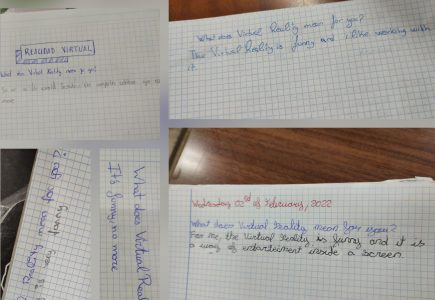 REALIDAD VIRTUAL
What does Virtual Reality mean for you?
more
What does Virtual Reality mean for you?
The Virtual Reality is funny and i like working with
it
Reality mean for you?
is very funny
What does Virtual Real
It's funny no more
Wednesday 02nd of February, 2022
What does Virtual Reality mean for you?
For me, the Virtual Reality is funny and it is
a way of entertaiment inside a screen.